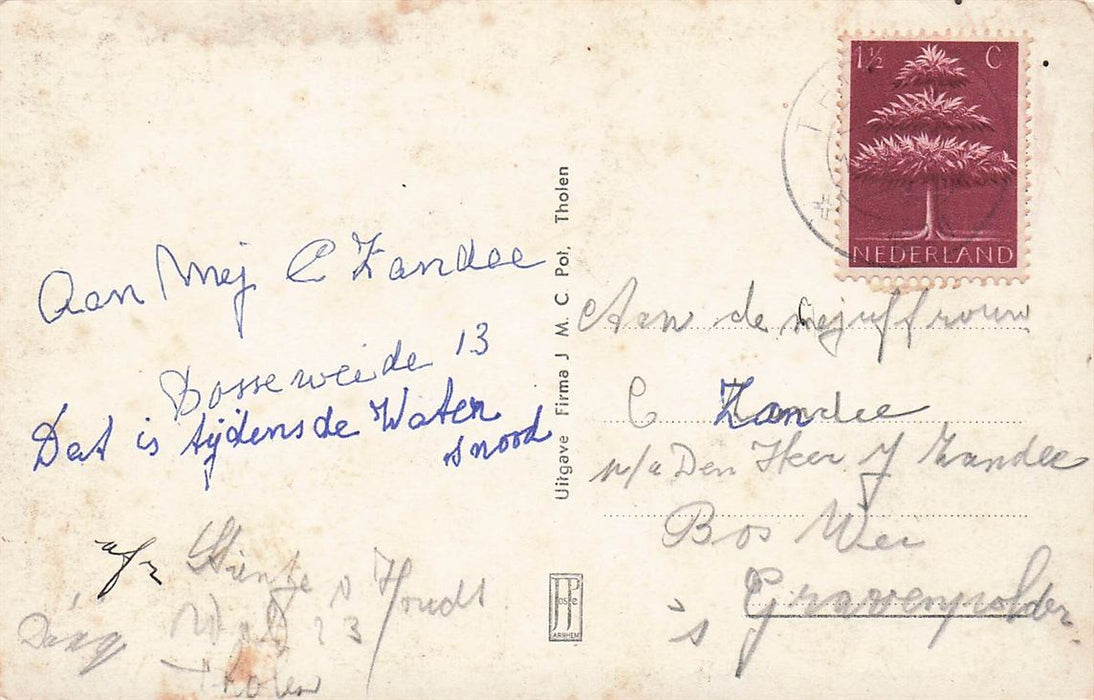 1½ C
NEDERLAND
Aan Mej C Zandee
Bosseweide 13
Dat is tijdens de Waters
nood
afz Stientje v Houdt
Daag
23
Tholen
Uitgave Firma J M. C. Pol, Tholen
JP
ARNHEM
Aan de mejuffrouw
C Zandee
p/a Den Heer J Zandee
Bos Wei
's Gravenpolder